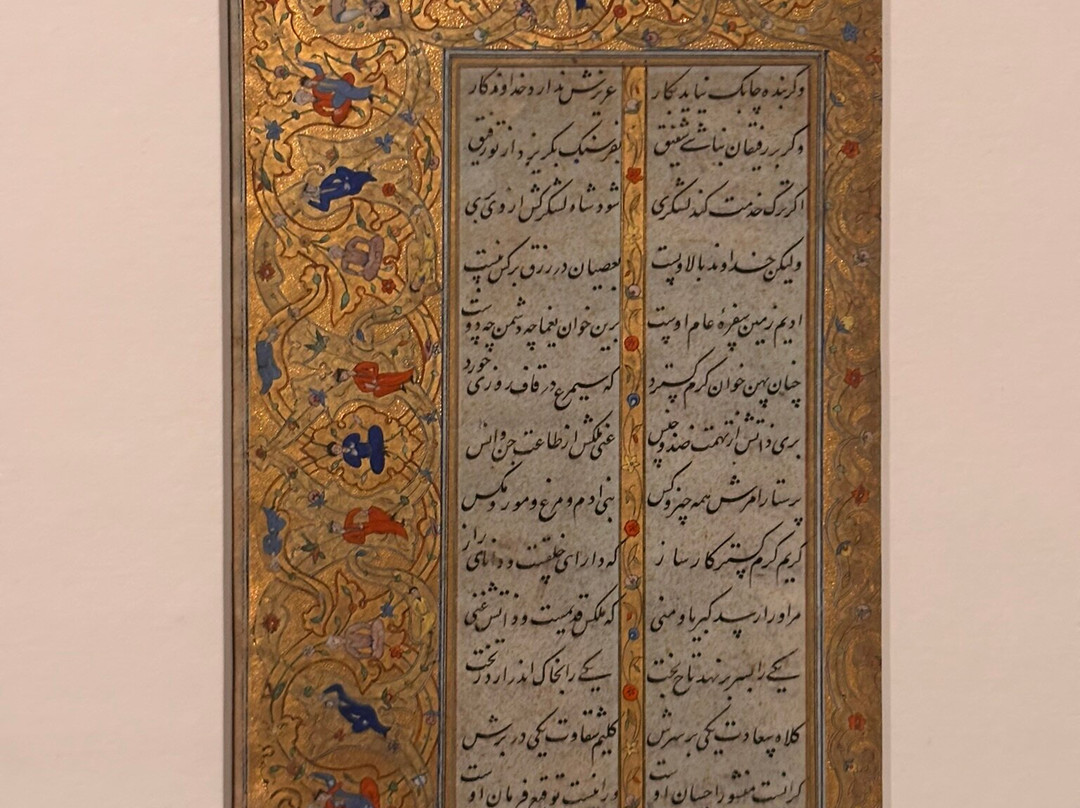 وگر بنده چابک نیاید بکار عزیزش ندارد خداوندگار
وگر بر رفیقان نباشی شفیق بفرسنگ بگریزد از تو رفیق
اگر ترک خدمت کند لشکری شود شاه لشکرکش از وی بری
ولیکن خداوند بالا و پست بعصیان در رزق بر کس نبست
ادیم زمین سفرهٔ عام اوست برین خوان یغما چه دشمن چه دوست
چنان پهن خوان کرم گسترد که سیمرغ در قاف روزی خورد
بری ذاتش از تهمت ضد و جنس غنی ملکش از طاعت جن و انس
پرستار امرش همه چیز و کس بنی ادم و مرغ و مور و مگس
کریم کرم گستر کارساز که دارای خلقست و دانای راز
مر او را رسد کبریا و منی که ملکش قدیمست و ذاتش غنی
یکی را بسر بر نهد تاج بخت یکی را بخاک اندر ارد ز تخت
کلاه سعادت یکی بر سرش گلیم شقاوت یکی در برش
گر انست منشور احسان اوست ور اینست توقیع فرمان اوست